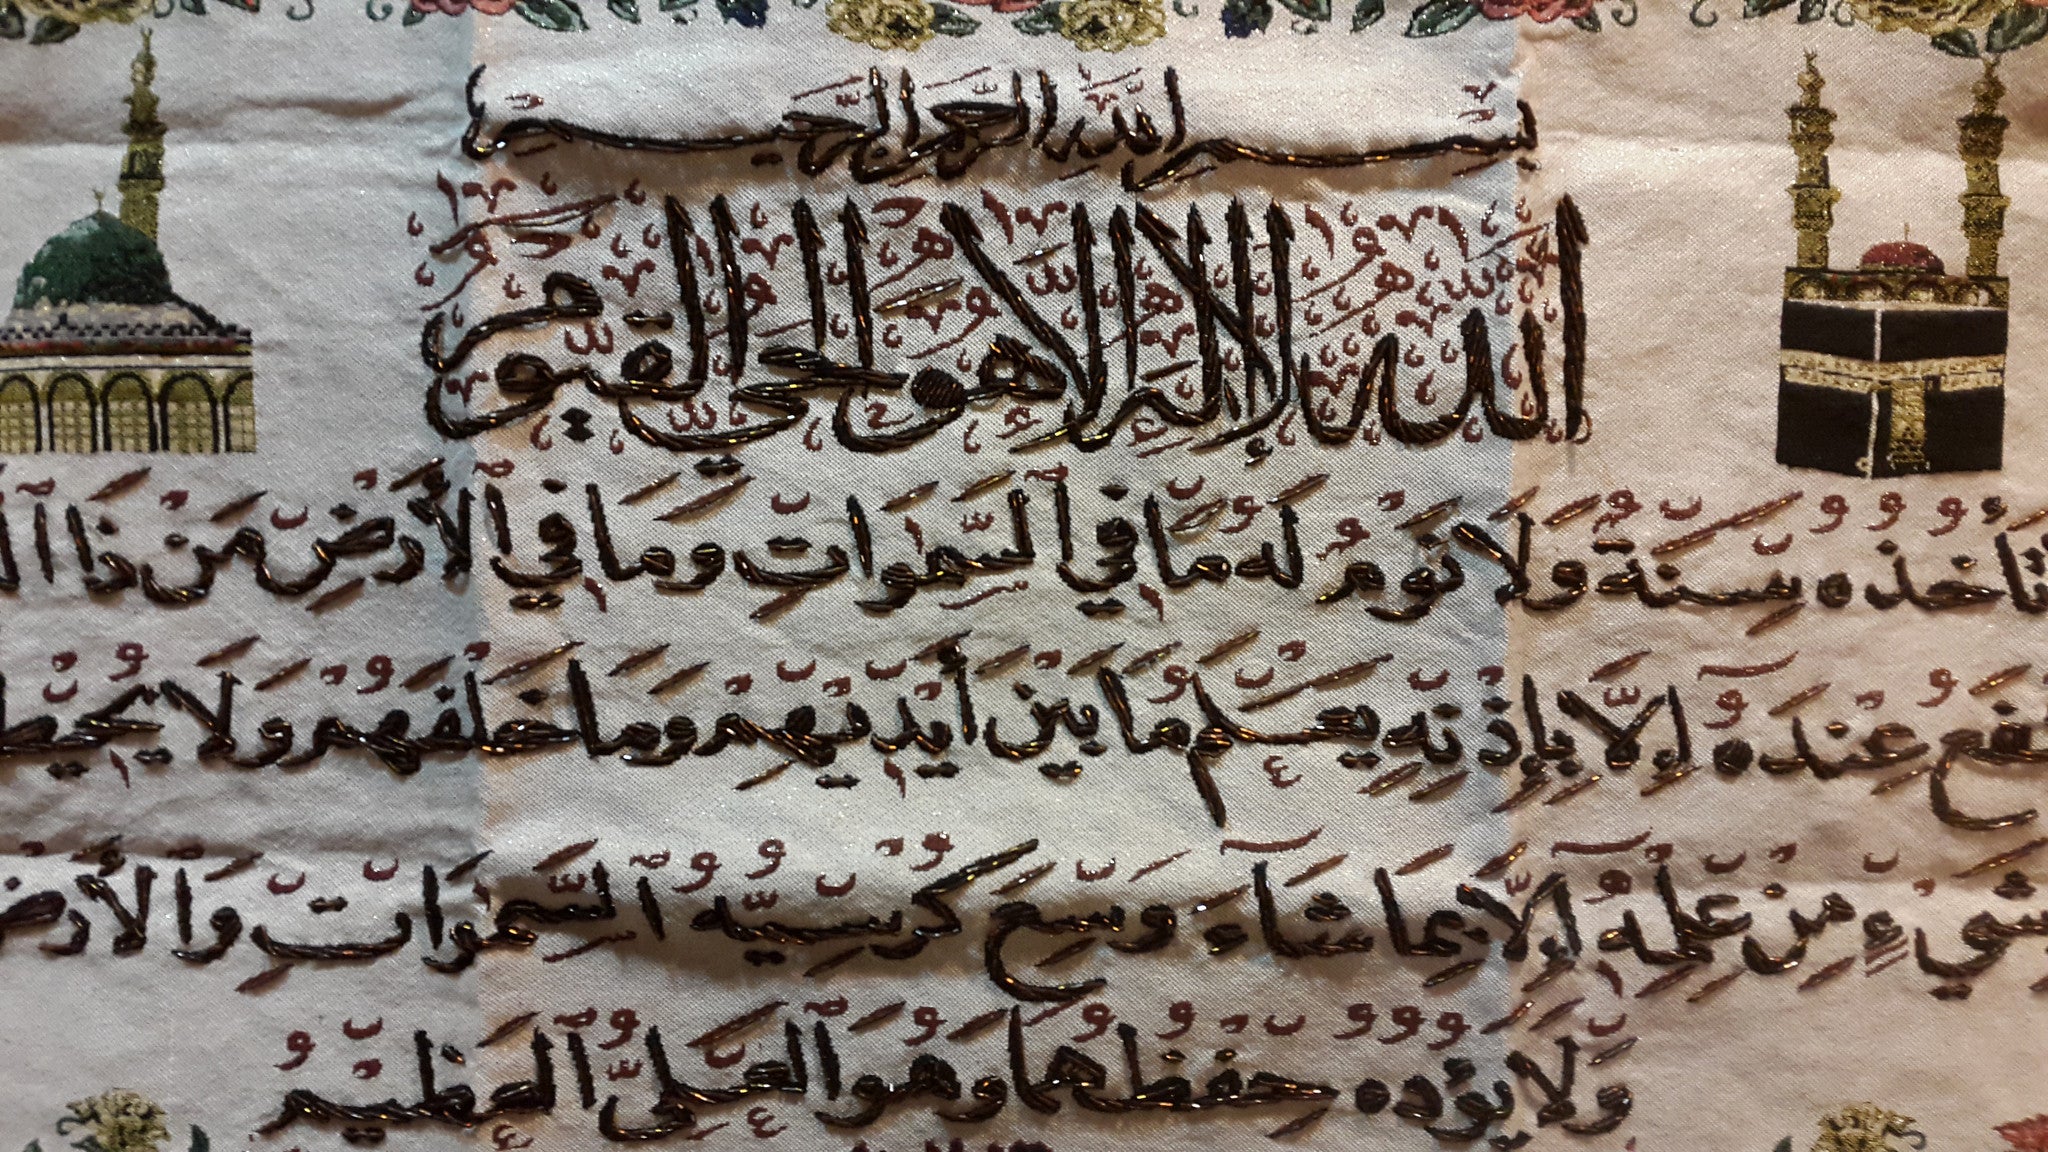 بِسْمِ اللَّهِ الرَّحْمٰنِ الرَّحِيمِ
اللَّهُ لَا إِلٰهَ إِلَّا هُوَ الْحَيُّ الْقَيُّومُ
تَأْخُذُهُ سِنَةٌ وَلَا نَوْمٌ لَهُ مَا فِي السَّمٰوَاتِ وَمَا فِي الْأَرْضِ مَنْ ذَا
عِنْدَهُ إِلَّا بِإِذْنِهِ يَعْلَمُ مَا بَيْنَ أَيْدِيهِمْ وَمَا خَلْفَهُمْ وَلَا
شَيْءٍ مِنْ عِلْمِهِ إِلَّا بِمَا شَاءَ وَسِعَ كُرْسِيُّهُ السَّمٰوَاتِ وَالْأَرْضَ
وَلَا يَؤُدُهُ حِفْظُهُمَا وَهُوَ الْعَلِيُّ الْعَظِيمُ